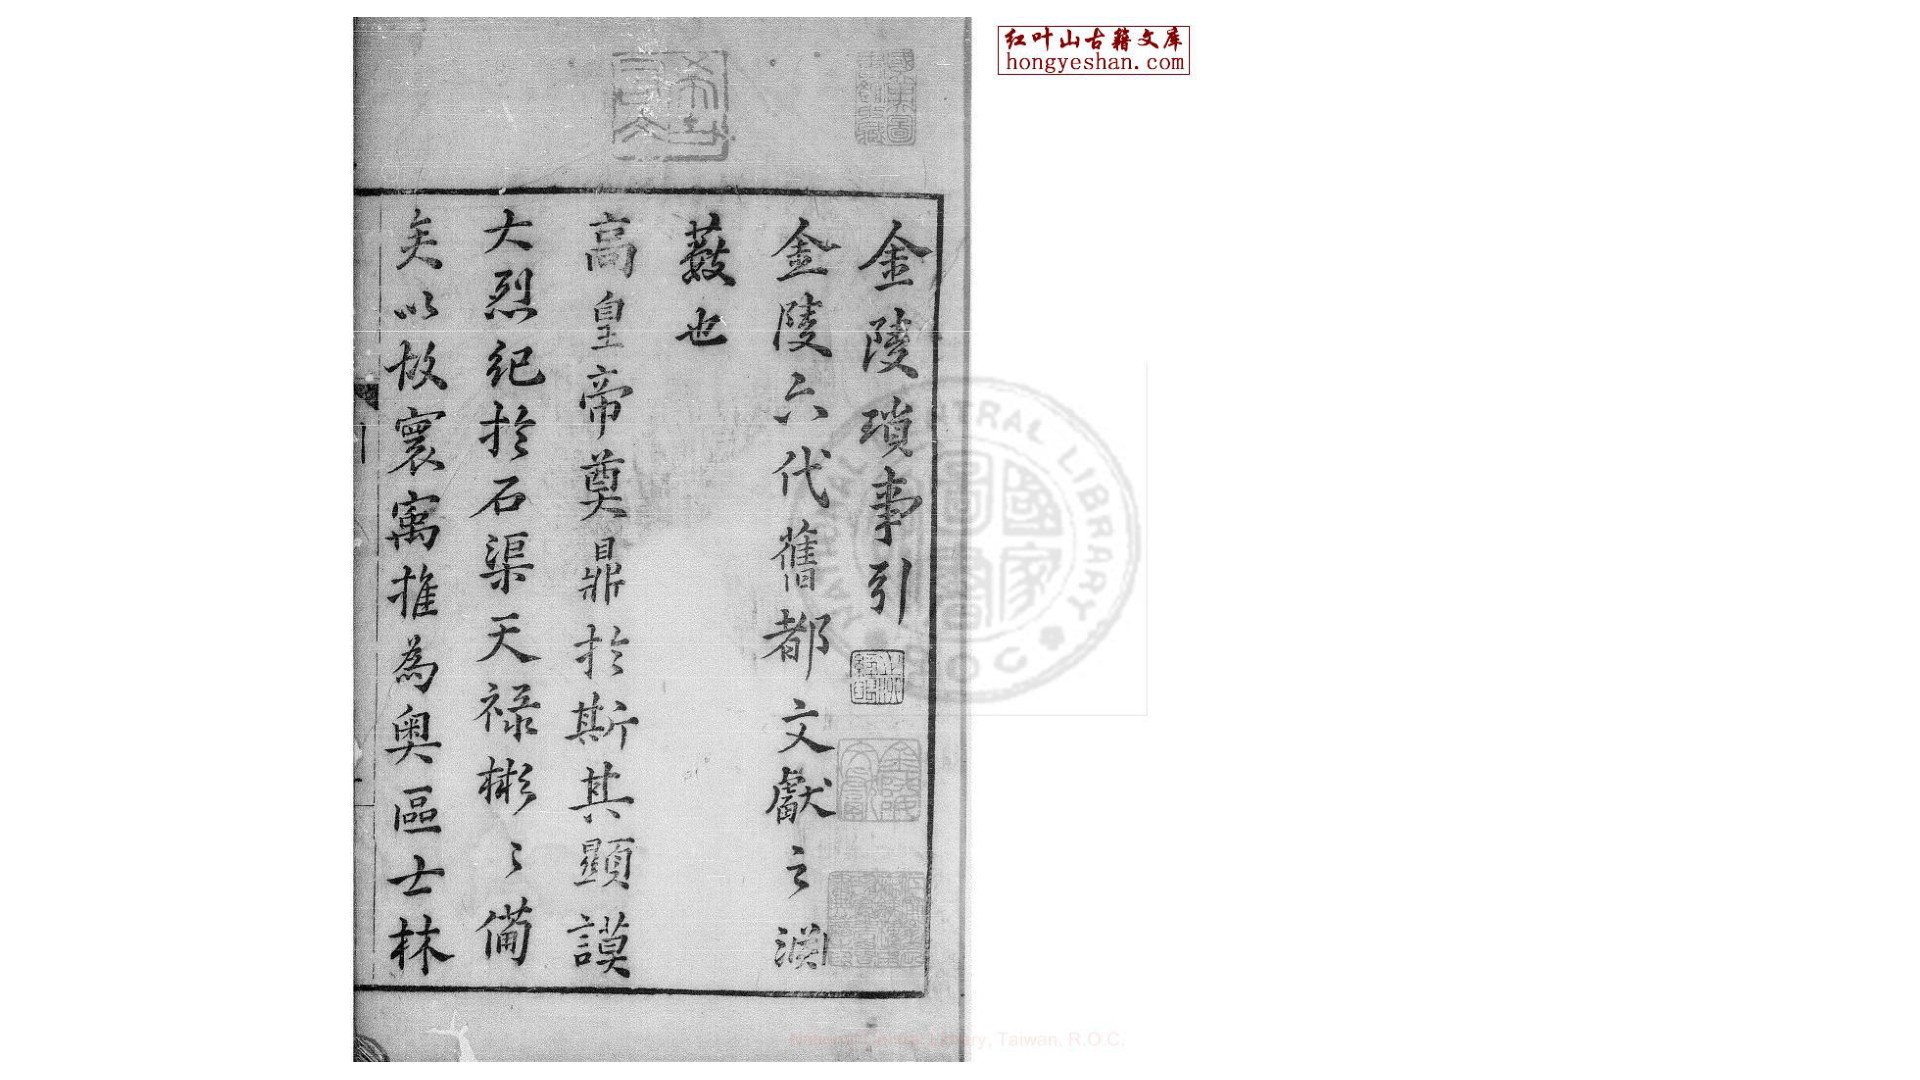 金陵瑣事引
金陵六代舊都文獻之淵
藪也
高皇帝奠鼎於斯其顯謨
大烈紀於石渠天祿彬〻備
矣以故寰㝢推為奧區士林
红叶山古籍文库
hongyeshan.com
NATIONAL CENTRAL LIBRARY
R.O.C
國家圖書
National Central Library, Taiwan, R.O.C.